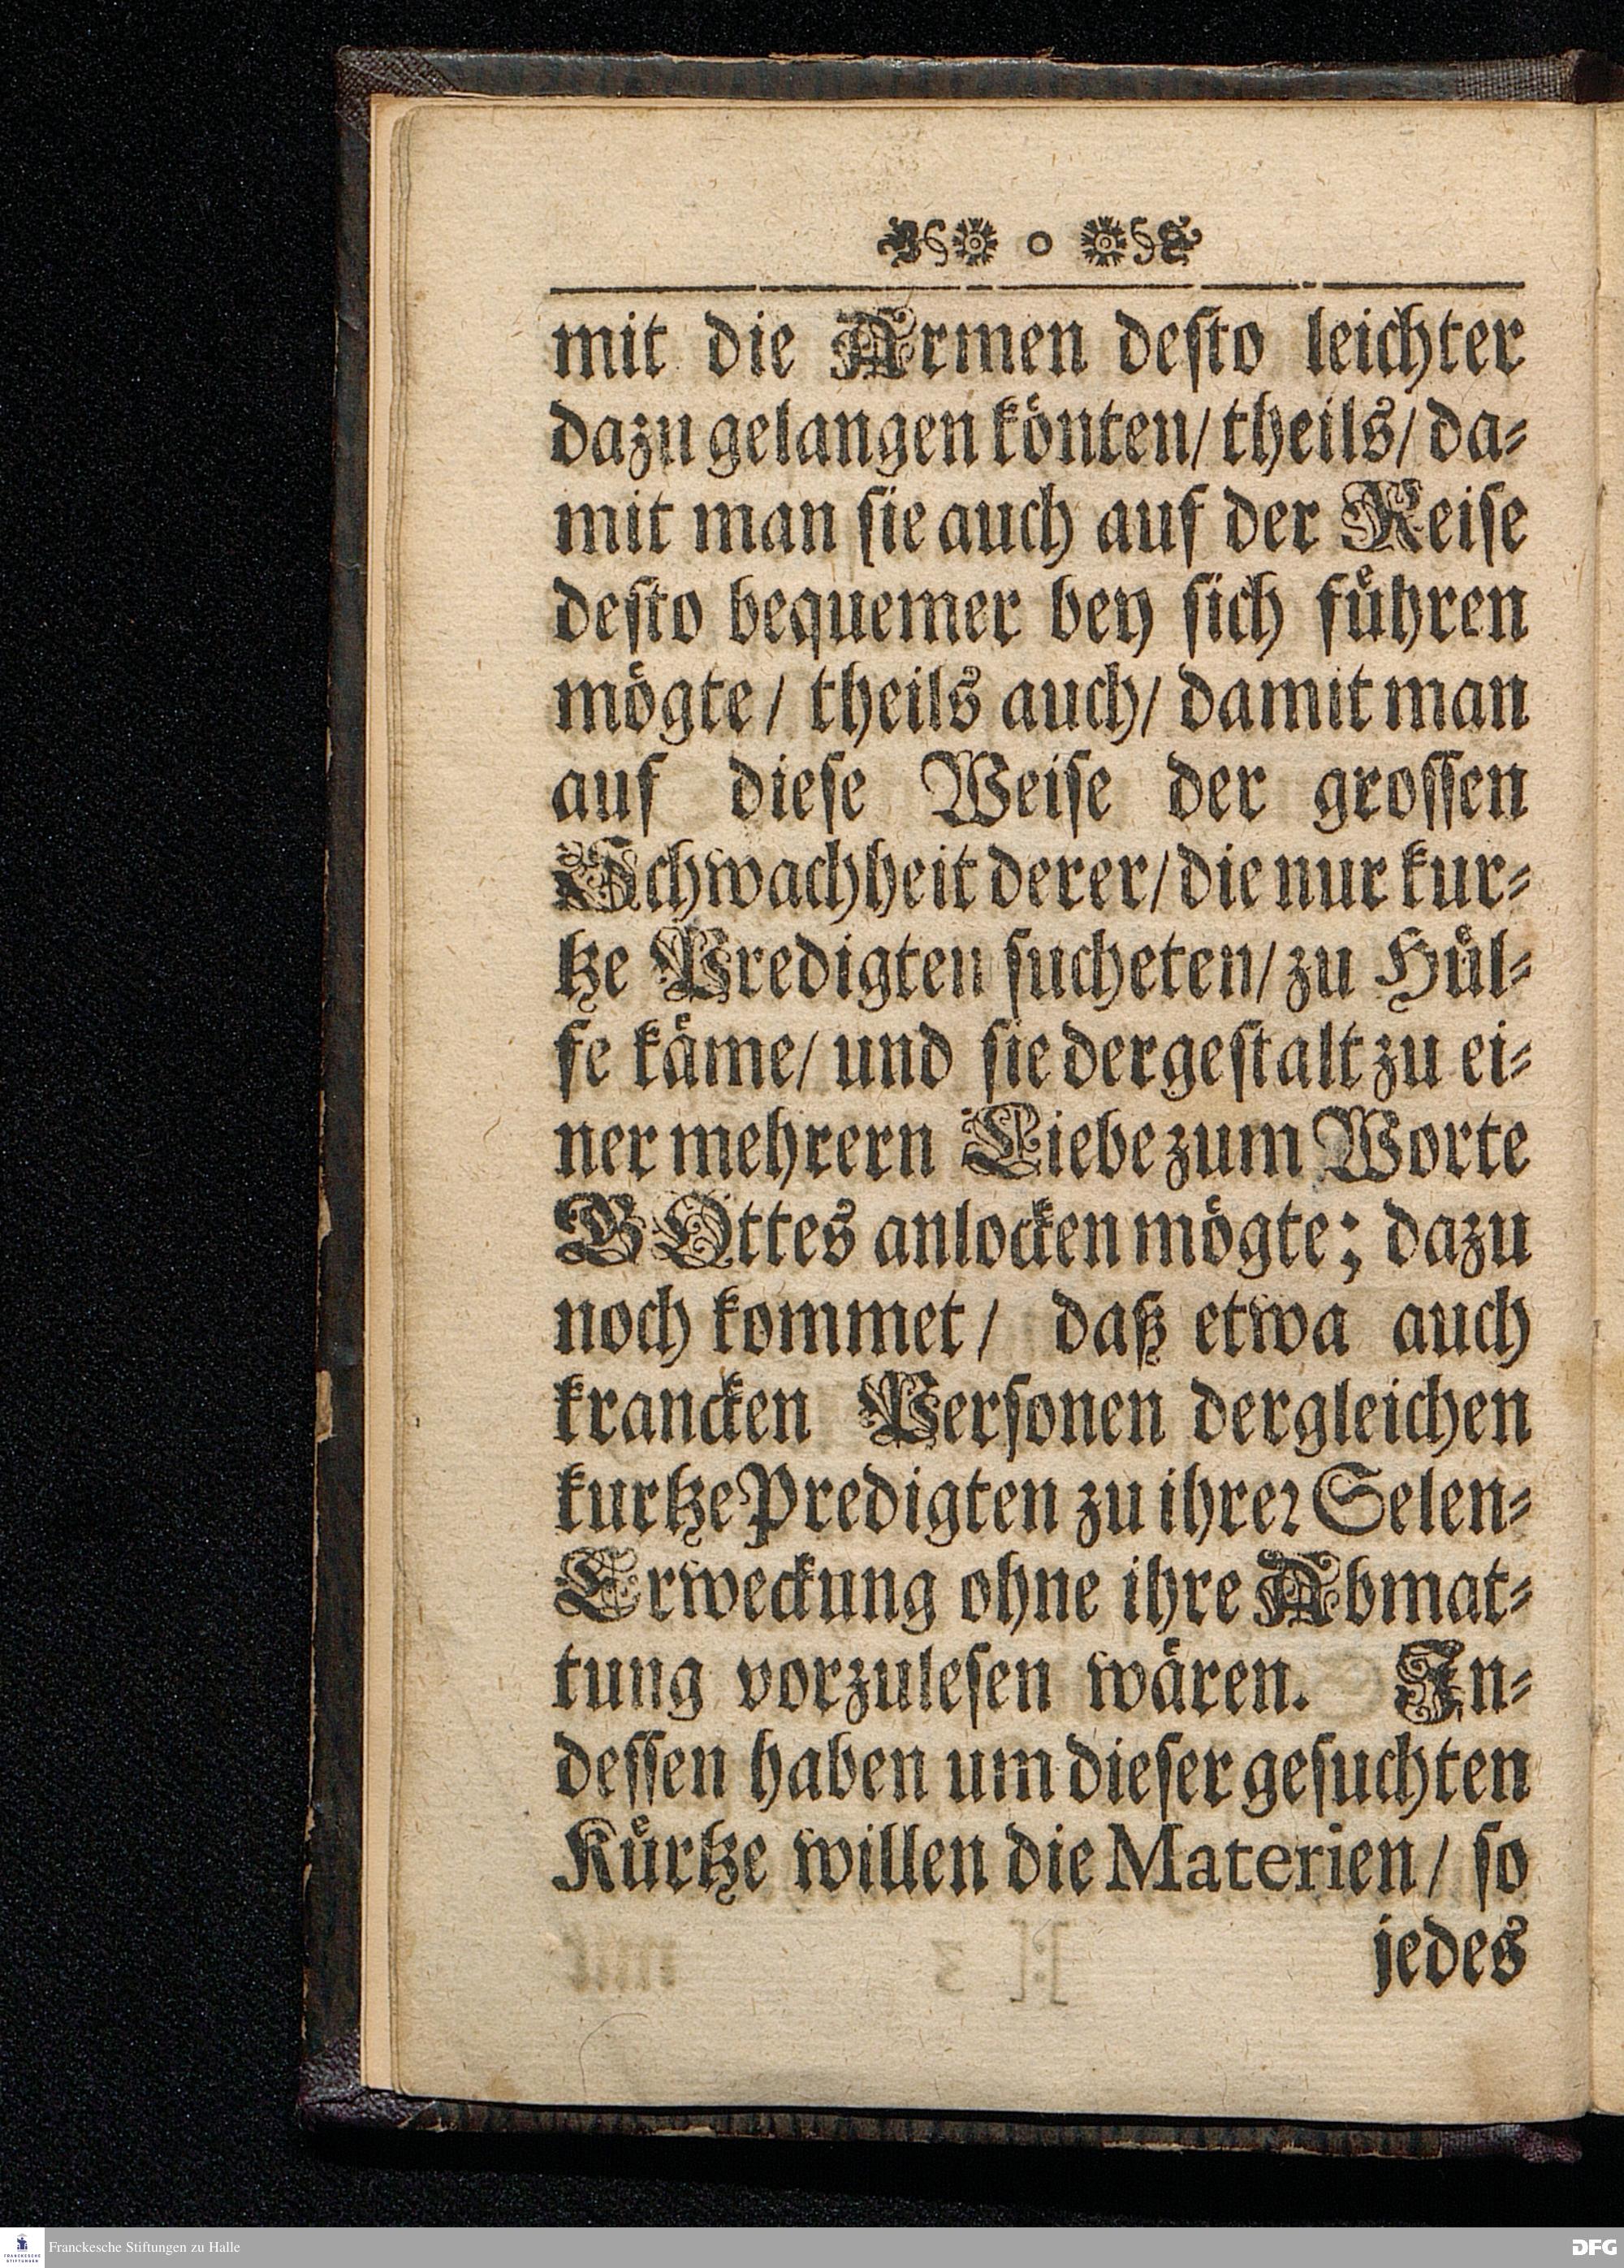 o
mit die Armen deſto leichter
dazu gelangen koͤnten/ theils/ da⸗
mit man ſie auch auf der Reiſe
deſto bequemer bey ſich fuͤhren
moͤgte/ theils auch/ damit man
auf dieſe Weiſe der groſſen
Schwachheit derer/ die nur kur⸗
tze Predigten ſucheten/ zu Huͤl⸗
fe kaͤme/ und ſie dergeſtalt zu ei⸗
ner mehrern Liebe zum Worte
GOttes anlocken moͤgte; dazu
noch kommet/ daß etwa auch
krancken Perſonen dergleichen
kurtze Predigten zu ihrer Selen⸗
Erweckung ohne ihre Abmat⸗
tung vorzuleſen waͤren. In⸗
deſſen haben um dieſer geſuchten
Kuͤrtze willen die Materien/ ſo
jedes
FRANCKESCHE STIFTUNGEN
Franckesche Stiftungen zu Halle
DFG